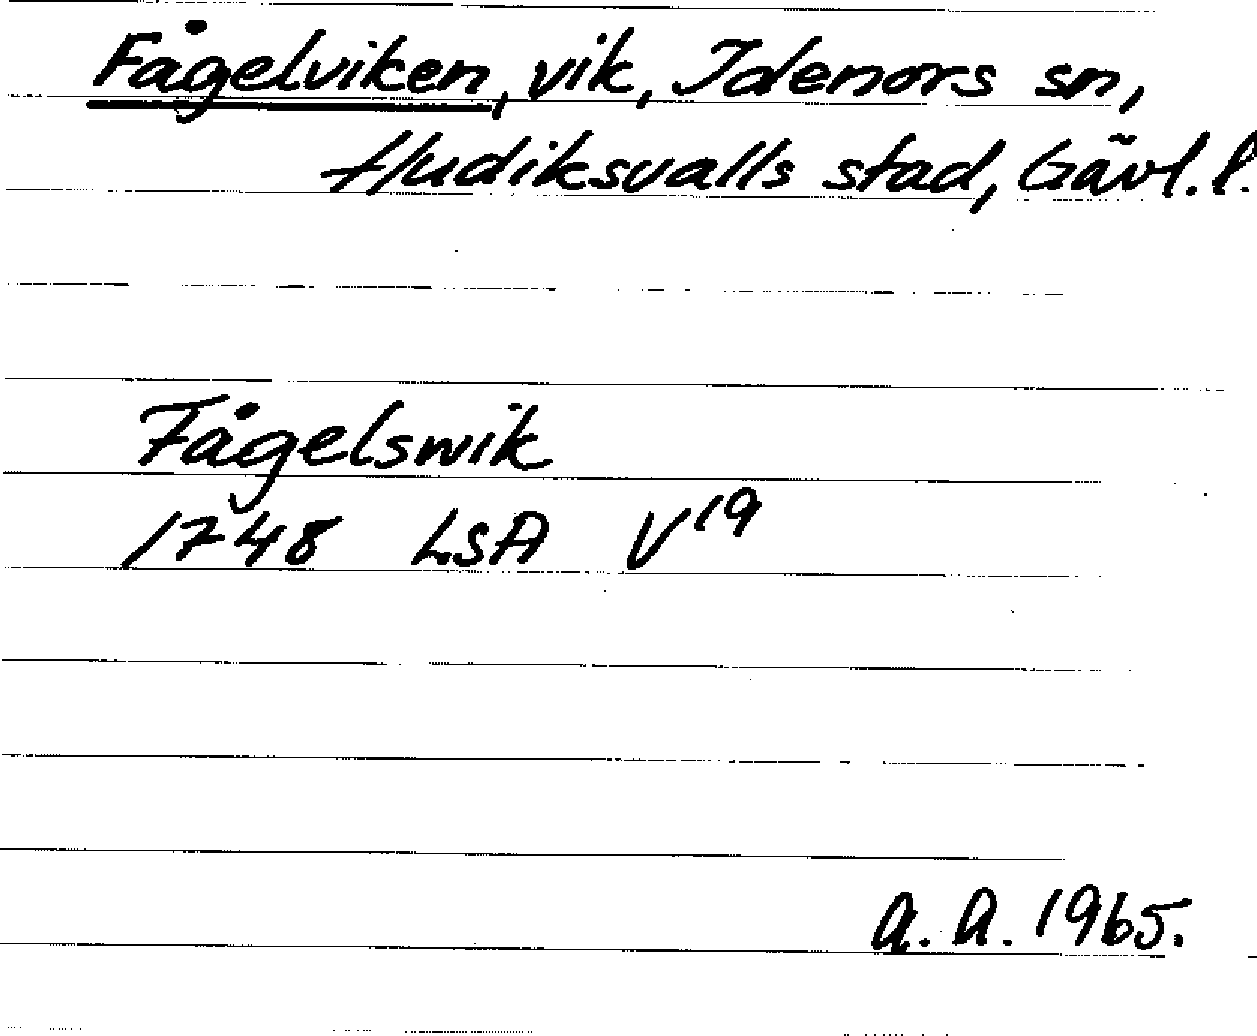 Fågelviken, vik, Idenors sn,
Hudiksvalls stad, Gävl. l.
Fågelswik
1748 LSA V¹⁹
a. a. 1965.